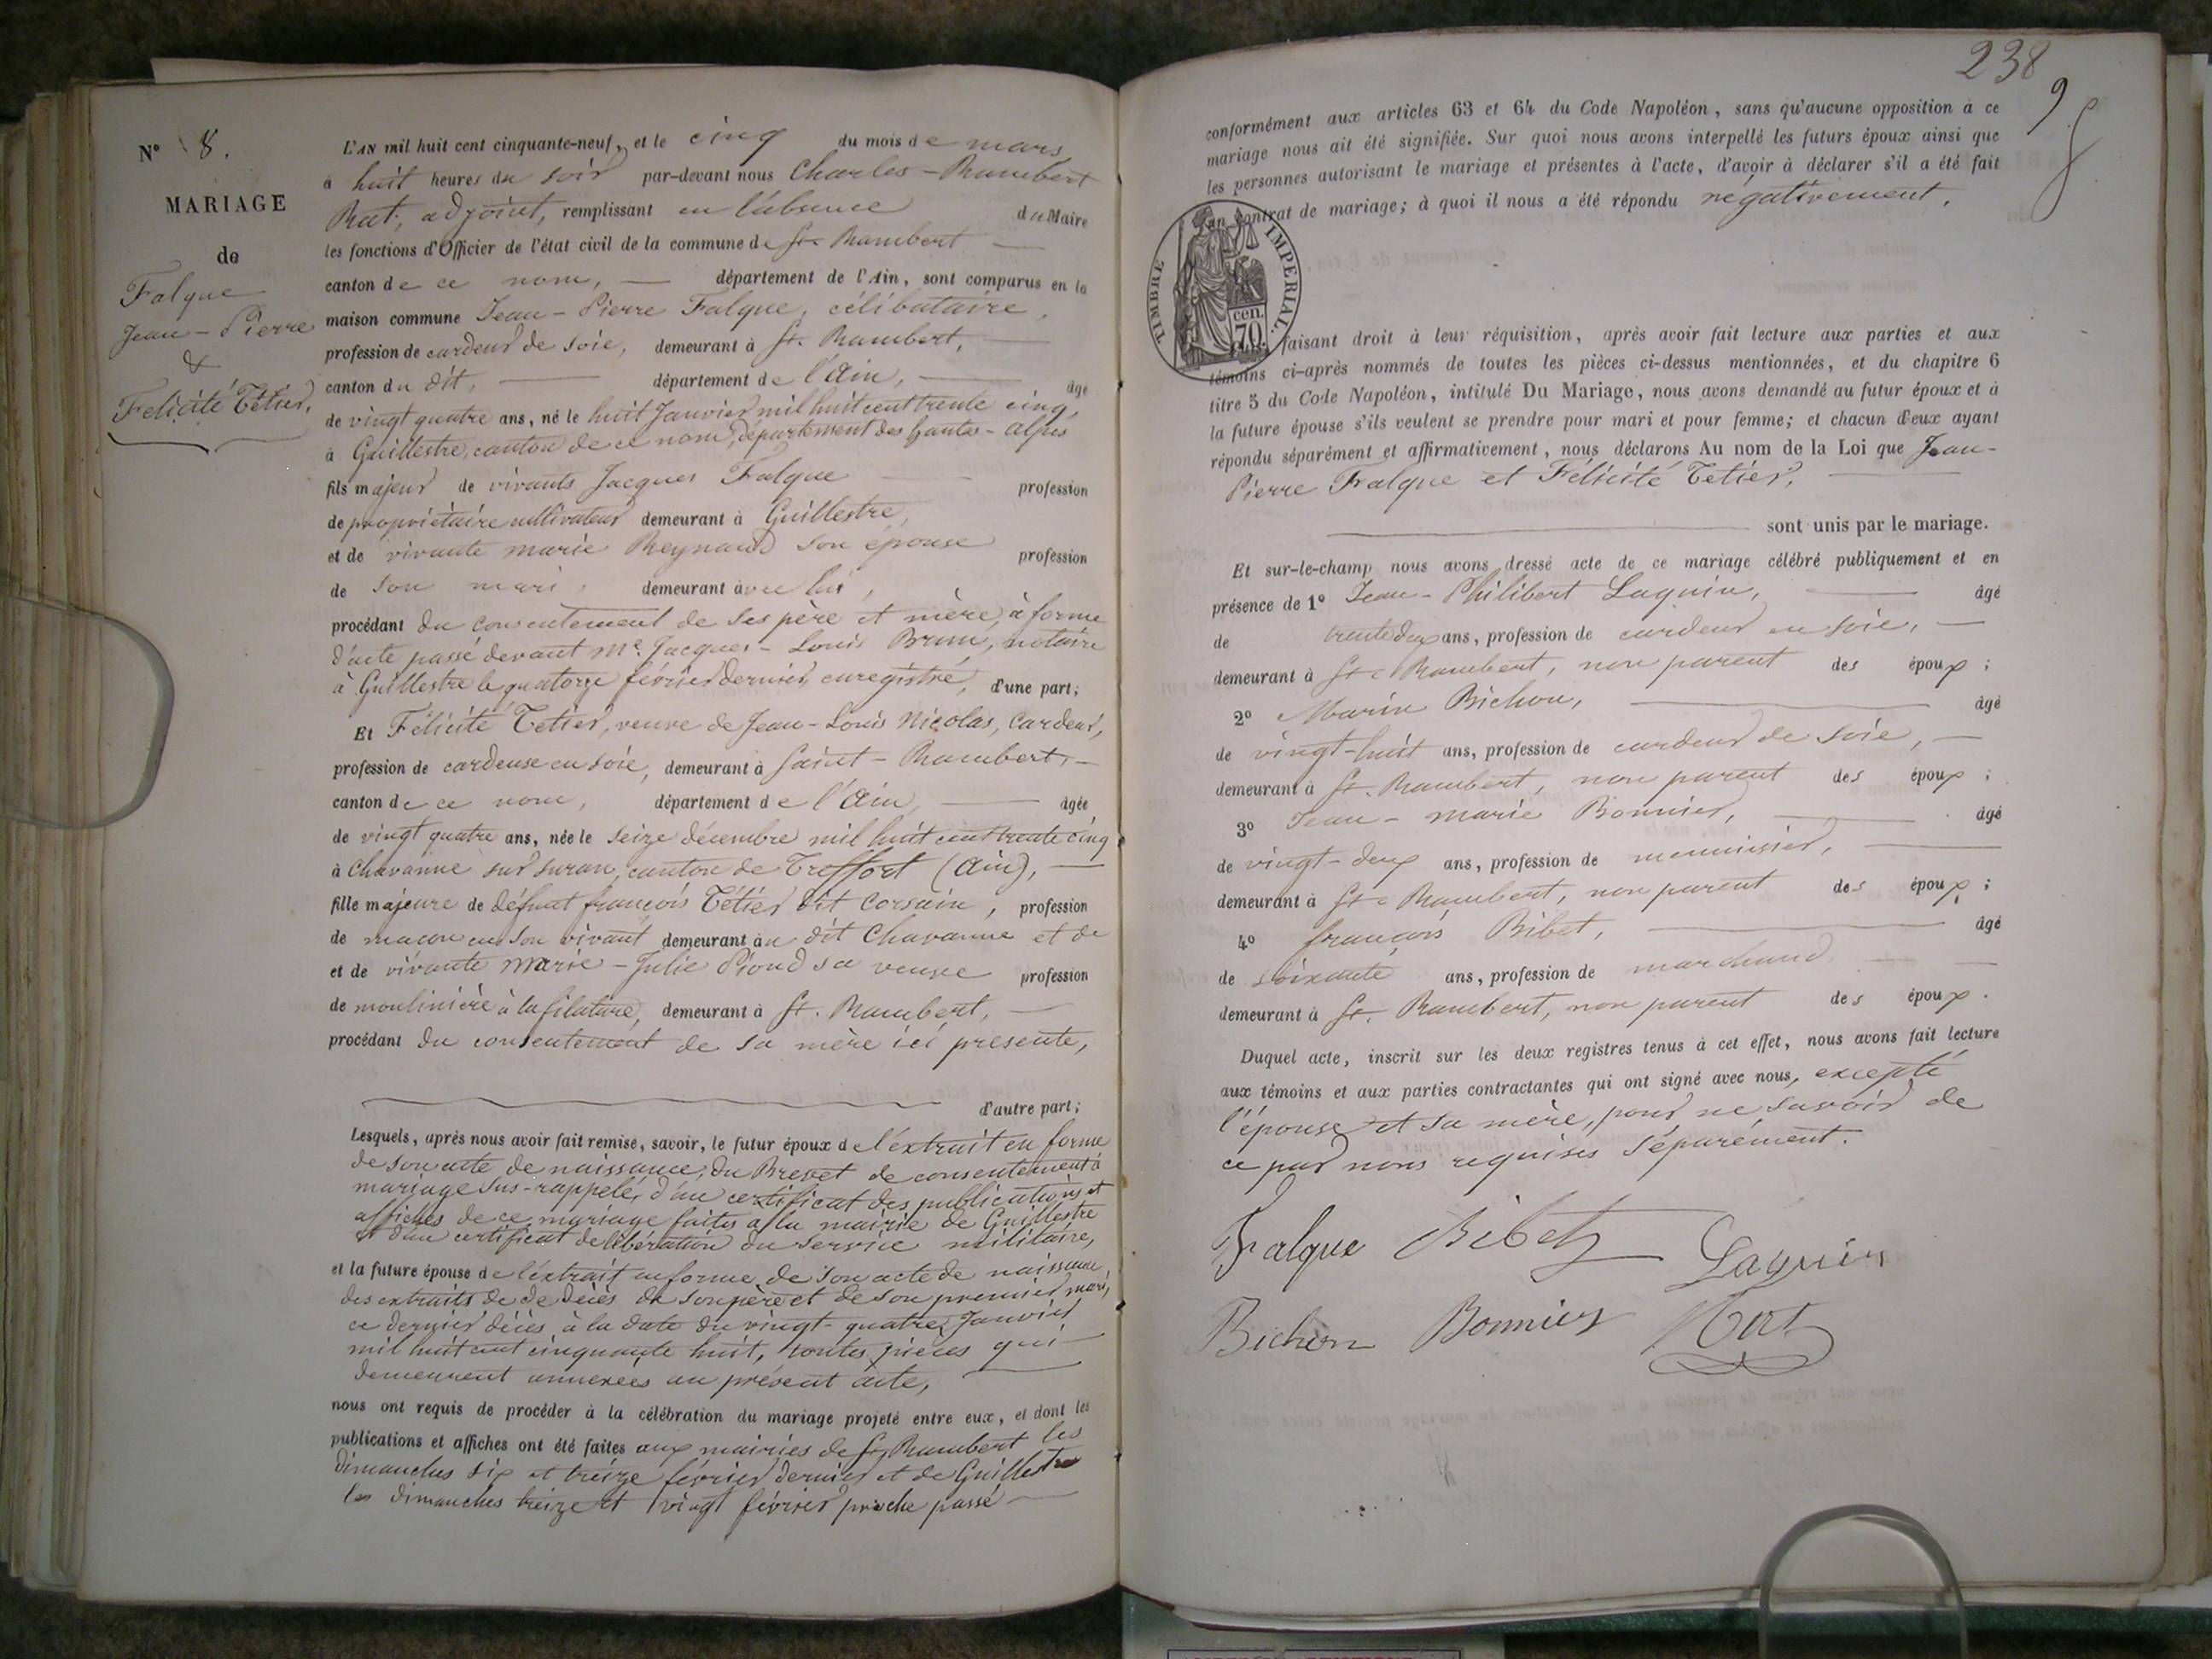 N° 8.
MARIAGE
de
Falque
Jean-Pierre
&
Felicité Tétier.
L'AN mil huit cent cinquante-neuf, et le cinq du mois de mars
à huit heures du soir par-devant nous Charles-Rambert
Rat, adjoint, remplissant en l'absence du Maire
les fonctions d'Officier de l'état civil de la commune de St Rambert
canton de ce nom, département de l'Ain, sont comparus en la
maison commune Jean-Pierre Falque, célibataire,
profession de cardeur de soie, demeurant à St. Rambert,
canton du dit, département de l'Ain, âgé
de vingt quatre ans, né le huit Janvier mil huit cent trente cinq,
à Guillestre, canton de ce nom, département des hautes-alpes
fils majeur de vivants Jacques Falque profession
de propriétaire cultivateur demeurant à Guillestre,
et de vivante marie Reynaud son épouse profession
de son mari, demeurant avec lui,
procédant du consentement de ses père et mère, à forme
d'acte passé devant Me. Jacques-Louis Brun, notaire
à Guillestre le quatorze février dernier, enregistré, d'une part;
Et Félicité Tetier, veuve de Jean-Louis Nicolas, Cardeur,
profession de cardeuse en soie, demeurant à Saint-Rambert,
canton de ce nom, département de l'Ain, âgée
de vingt quatre ans, née le seize décembre mil huit cent trente cinq
à Chavanne sur suran, canton de Treffort (Ain),
fille majeure de défunt françois Tétier dit Corsain, profession
de macon en son vivant demeurant au dit Chavanne et de
et de vivante Marie-Julie Pioud sa veuve profession
de moulinière à la filature, demeurant à St. Rambert,
procédant du consentement de sa mère ici présente,
d'autre part;
Lesquels, après nous avoir fait remise, savoir, le futur époux de l'extrait en forme
de son acte de naissance, du Brevet de consentement à
mariage sus-rappelé, d'un certificat des publications et
affiches de ce mariage faites à la mairie de Guillestre
et d'un certificat de libération du service militaire,
et la future épouse de l'extrait en forme de son acte de naissance,
des extraits de de décès de son père et de son premier mari,
ce dernier décès à la date du vingt-quatre Janvier
mil huit cent cinquante huit, toutes pièces qui
demeurent annexées au présent acte,
nous ont requis de procéder à la célébration du mariage projeté entre eux, et dont les
publications et affiches ont été faites aux mairies de St Rambert les
dimanches six et treize février dernier et de Guillestre
les dimanches treize et vingt février proche passé
238
9
conformément aux articles 63 et 64 du Code Napoléon, sans qu'aucune opposition à ce
mariage nous ait été signifiée. Sur quoi nous avons interpellé les futurs époux ainsi que
les personnes autorisant le mariage et présentes à l'acte, d'avoir à déclarer s'il a été fait
un contrat de mariage; à quoi il nous a été répondu négativement.
TIMBRE IMPERIAL.
70 cen.
faisant droit à leur réquisition, après avoir fait lecture aux parties et aux
témoins ci-après nommés de toutes les pièces ci-dessus mentionnées, et du chapitre 6
titre 5 du Code Napoléon, intitulé Du Mariage, nous avons demandé au futur époux et à
la future épouse s'ils veulent se prendre pour mari et pour femme; et chacun d'eux ayant
répondu séparément et affirmativement, nous déclarons Au nom de la Loi que Jean-
Pierre Falque et Félicité Tetier,
sont unis par le mariage.
Et sur-le-champ nous avons dressé acte de ce mariage célébré publiquement et en
présence de 1° Jean-Philibert Laguin, âgé
de trente deux ans, profession de cardeur en soie,
demeurant à St Rambert, non parent des époux;
2° Marin Bichon, âgé
de vingt-huit ans, profession de cardeur de soie,
demeurant à St. Rambert, non parent des époux;
3° Jean-marie Bonnier, âgé
de vingt-deux ans, profession de menuisier,
demeurant à St Rambert, non parent des époux;
4° françois Bibet, âgé
de soixante ans, profession de marchand
demeurant à St. Rambert, non parent des époux.
Duquel acte, inscrit sur les deux registres tenus à cet effet, nous avons fait lecture
aux témoins et aux parties contractantes qui ont signé avec nous, excepté
l'épouse et sa mère, pour ne savoir de
ce par nous requises séparément.
Falque Bibet Laguin
Bichon Bonnier Rat